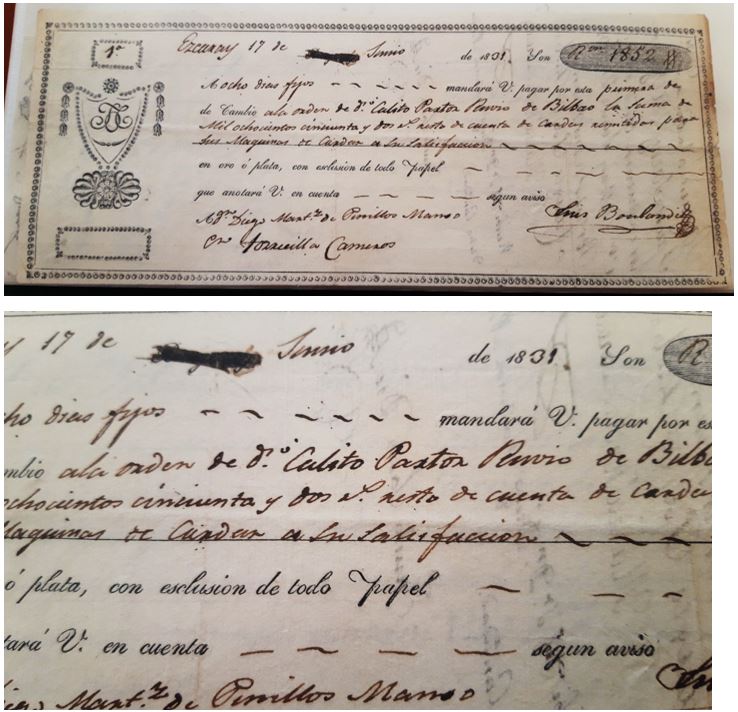 1ª
Ezcaray 17 de Junio de 1831. Son Rºn 1852
A ocho dias fijos mandará V. pagar por esta primera de
de Cambio ala orden de dº Calito Pastor Ruvio de Bilbao la suma de
Mil ochocientos cincuenta y dos rº resto de cuenta de Cardas remitidas para
sus Maquinas de Cardar a su satisfaccion
en oro ó plata, con esclusion de todo Papel
que anotará V. en cuenta segun aviso
A dºn Diego Mart.z de Pinillos Manso Luis
en Torrecilla Cameros
17 de Junio de 1831 Son R
dias fijos mandará V. pagar por es
ala orden de dº Calito Pastor Ruvio de Bilb
ochocientos cincuenta y dos rº resto de cuenta de Carda
Maquinas de Cardar a su satisfaccion
ó plata, con esclusion de todo Papel
tará V. en cuenta segun aviso
Mart.z de Pinillos Manso